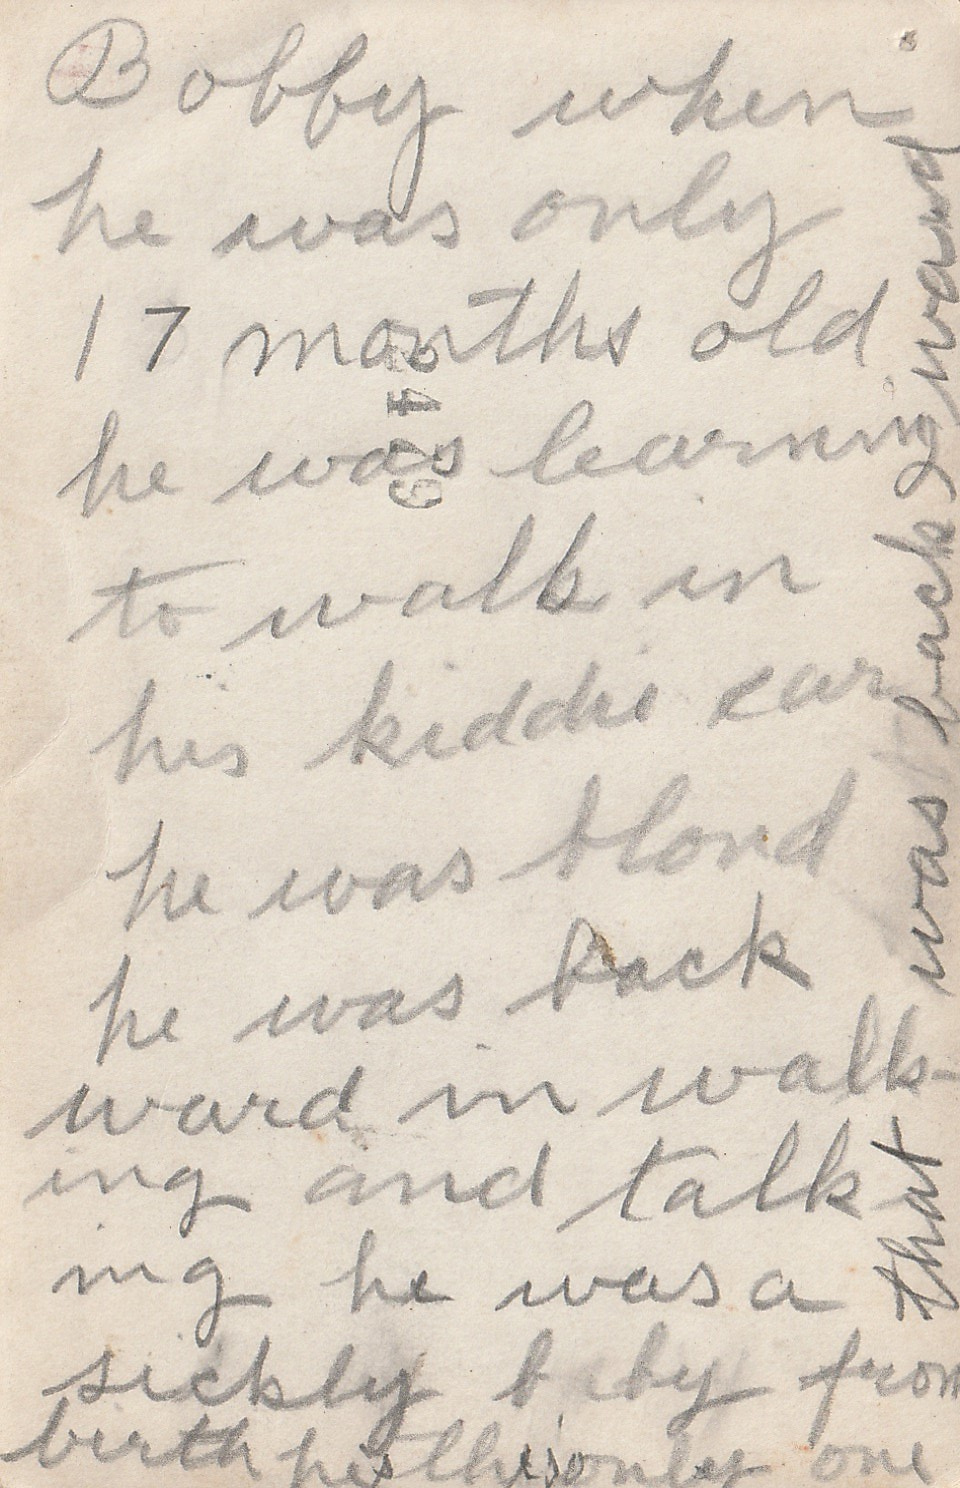 Bobby when
he was only
17 months old
he was learning
to walk in
his kiddie car
he was blond
he was back
ward in walk-
ing and talk
ing he was a
sickly baby from
birth he's the only one
that was backward